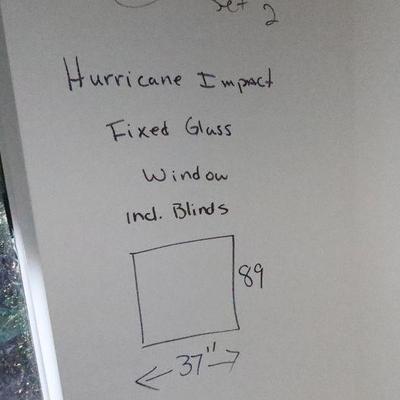 Set 2
Hurricane Impact
Fixed Glass
Window
Incl. Blinds
89
37"